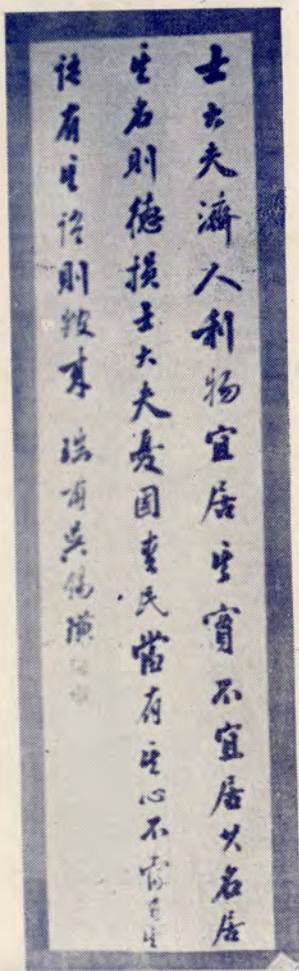 士大夫濟人利物宜居其實不宜居其名居
其名則德損士大夫憂国為民當有其心不當有其
語有其語則毀來 瑞甫吳錫璜